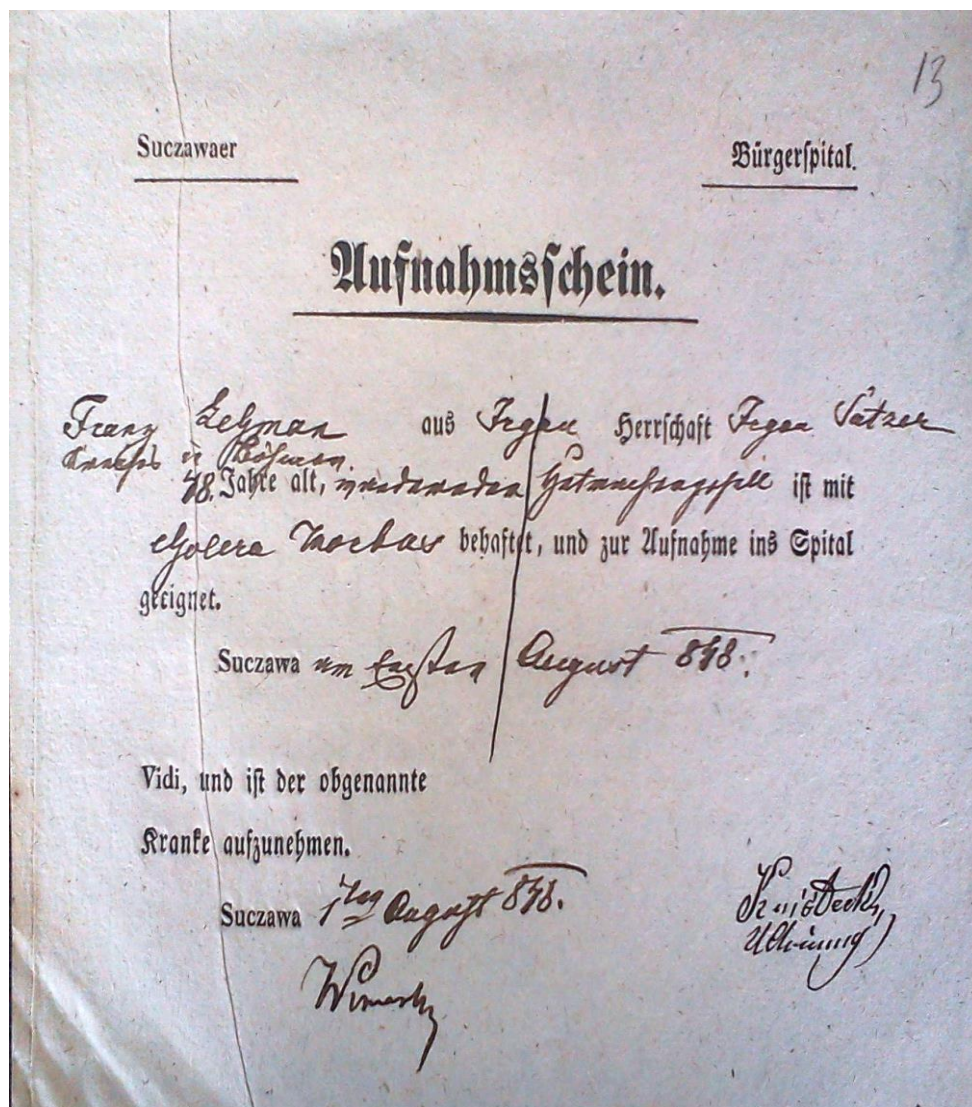 13
Suczawaer Bürgerspital.
Aufnahmsschein.
Franz Lehman aus Herrschaft Satzer
in Böhmen
48. Jahre alt, ist mit
Cholera Morbus behaftet, und zur Aufnahme ins Spital
geeignet.
Suczawa am Ersten August 848.
Vidi, und ist der obgenannte
Kranke aufzunehmen.
Suczawa August 848.